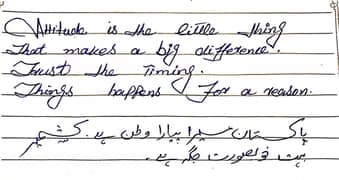 Attitude is the little thing
That makes a big difference.
Trust the Timing.
Things happens For a reason.
پاکستان میرا پیارا وطن ہے۔ کشمیر
بہت خوبصورت جگہ ہے۔